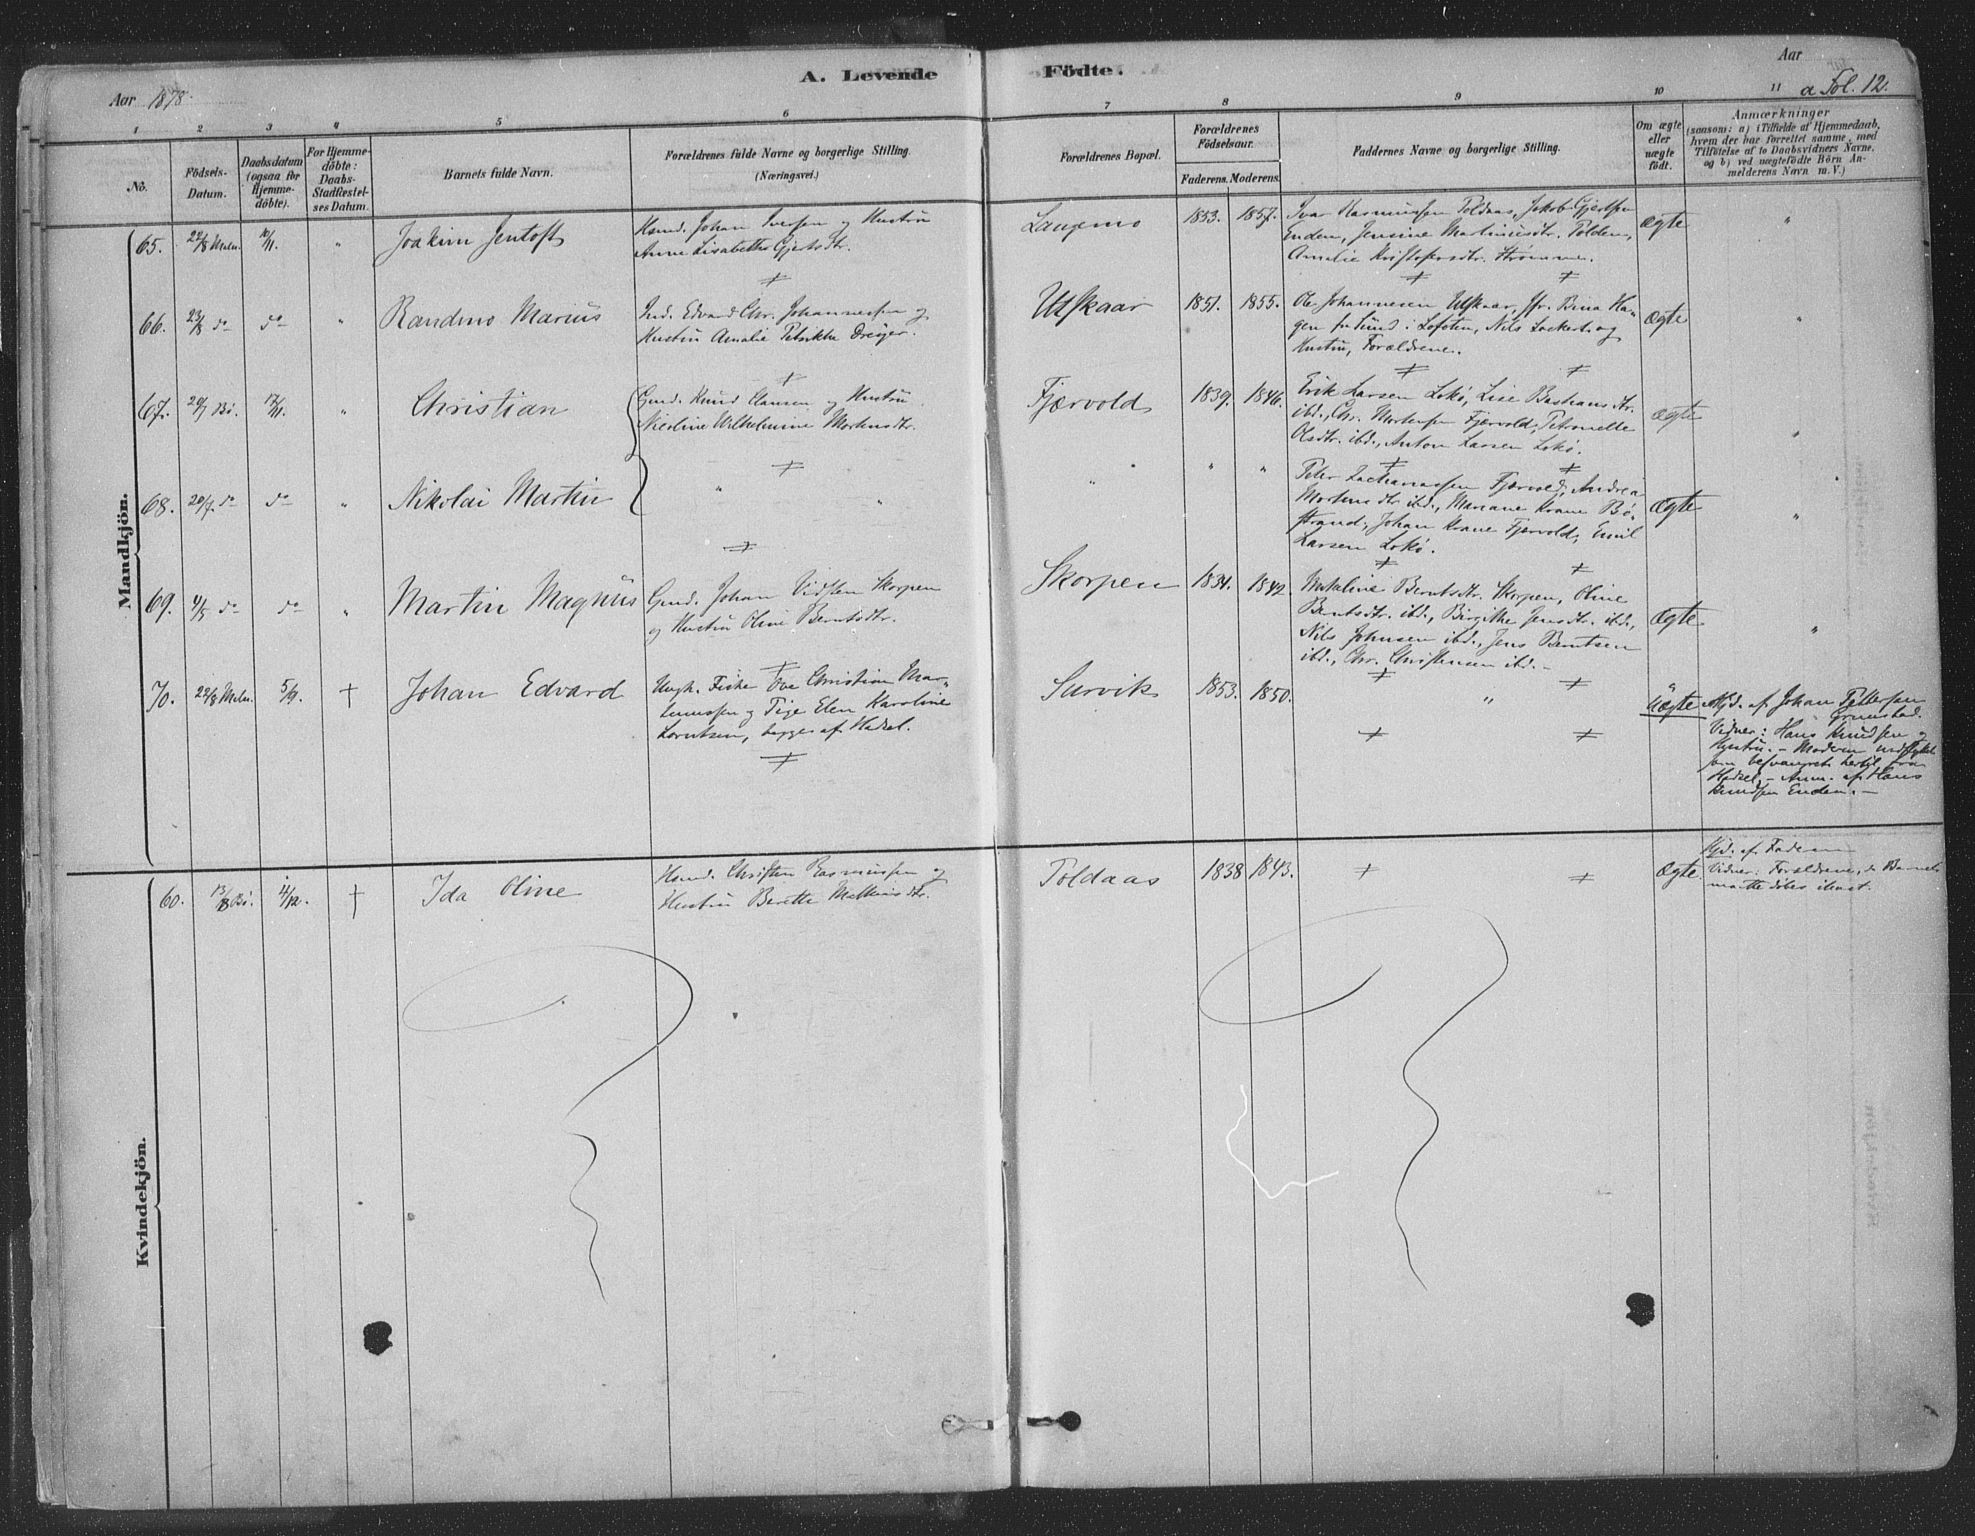 A. Levende Födte.
Aar 1878. Aar
a Fol. 12.
1 2 3 4 5 6 7 8 9 10 11
No. Födsels-Datum. Daabsdatum (ogsaa for Hjemme-döbte). For Hjemme-döbte: Daabs-Stadfæstel-ses Datum. Barnets fulde Navn. Forældrenes fulde Navne og borgerlige Stilling. (Næringsvei.) Forældrenes Bopæl. Forældrenes Födselsaar. Faderens. Moderens. Faddernes Navne og borgerlige Stilling. Om ægte eller uægte födt. Anmærkninger (saasom: a) i Tilfælde af Hjemmedaab, hvem der har forrettet samme, med Tilföielse af to Daabsvidners Navne, og b) ved uægtefödte Börn An-melderens Navn m. V.)
Mandkjön.
65. 22/8 Meln. 10/11. " Joakim Jentoft
Husmd. Johan Iversen og Hustru
Anne Lisabethe Gjertsdtr.
Langmo 1853. 1857.
Ivar Rasmussen Toldaas, Jakob Gjertsen
Enden, Jensine Martinusdtr. Tolden,
Amalie Kristofersdtr. Strømme.
Ægte "
66. 23/8 do do " Randmo Marius
Ind. Edvard Chr. Johannessen og
Hustru Amalie Petrikke Dreyer.
Utskaar 1851. 1855.
Ole Johannesen Utskaar, Jfr. Bina Ha-
gen fra Sund i Lofoten, Nils Lockert og
Hustru, Forældrene.
Ægte "
67. 20/7 Bö. 17/11. " Christian
Gmd. Knud Clausen og Hustru
Nicoline Wilhelmine Mortensdtr.
Fjærvold 1839. 1846.
Erik Larsen Lokø, Lise Bastiansdtr.
ibd., Chr. Mortensen Fjærvold, Petronelle
Olsdtr. ibd., Anton Larsen Lokø.
Ægte "
68. 20/7. do do " Nikolai Martin
" " " " "
Peter Zachariassen Fjærvold, Andrea
Mortensdtr. ibd., Mariane Krane Bö-
strand, Johan Krane Fjervold, Emil
Larsen Lokø.
Ægte "
69. 4/5 do do " Martin Magnus
Gmd. Johan Vidsten Skorpen
og Hustru Oline Berntsdtr.
Skorpen 1834. 1842
Mekaline Berntsdtr. Skorpen, Oline
Berntsdtr. ibd., Birgithe Jensdtr. ibd.,
Nils Johnsen ibd., Jens Berntsen
ibd., Chr. Christensen ibd.
Ægte "
70. 22/8 Meln. 5/9. † Johan Edvard
Ungk. Fisker Ove Christian Mar-
Pige Elen Karoline
Lorntsen, begge af Hadsel.
Survik 1853. 1850. "
Uægte
Hjd. af Johan Pettersen
Grunstad.
Vidner: Hans Knudsen og
Hustru. - Moderen indflyttet
som besvangret hertil fra
Hadsel. - Anm. af Hans
Knudsen Enden. -
Kvindekjön.
60. 13/8 Bö. 4/12. † Ida Oline
Husmd. Christen Rasmussen og
Hustru Berette Mathiasdtr.
Toldaas 1838 1843.
Ægte
Hjd. af Faderen
Vidner: Forældrene, da Barnet
maatte döbes ilsomt.